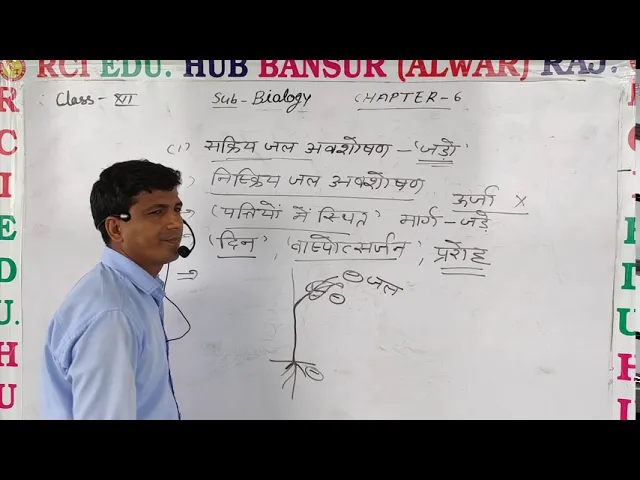 RCI EDU. HUB BANSUR (ALWAR) RAJ.
Class - XII Sub - Biology CHAPTER - 6
(1) सक्रिय जल अवशोषण - 'जड़ों'
) निष्क्रिय जल अवशोषण
ऊर्जा X
(पत्तियों में स्थित) मार्ग - जड़ें
'दिन', 'वाष्पोत्सर्जन', प्ररोह
⇒
जल
R C I E D U. H U